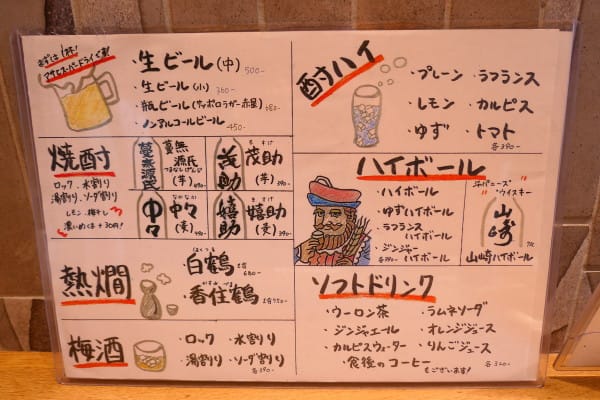 まずは1杯!
アサヒスーパードライです!
・生ビール(中) 500-
・生ビール(小) 360-
・瓶ビール(サッポロラガー赤星) 680-
・ノンアルコールビール 450-
焼酎
ロック・水割り
湯割り・ソーダ割り
レモン・梅干し
濃いめは+30円!
蔓無源氏
蔓無
源氏
つるなしげんぢ
(芋)
茂助
もすけ
茂助
(芋)
中々
なかなか
中々
(麦)
嬉助
嬉助
(麦) 390-
熱燗
はくつる
・白鶴
1合 680-
かすみつる
・香住鶴
梅酒
・ロック ・水割り
・湯割り ・ソーダ割り
各390-
酎ハイ
・プレーン ・ラフランス
・レモン ・カルピス
・ゆず ・トマト
各390-
ハイボール
・ハイボール
・ゆずハイボール
・ラフランス
ハイボール
・ジンジャー
ハイボール
各390-
ジャパニーズ
ウイスキー
山崎
山崎ハイボール
ソフトドリンク
・ウーロン茶 ・ラムネソーダ
・ジンジャエール ・オレンジジュース
・カルピスウォーター ・りんごジュース
・食後のコーヒー 各320-
もございます!